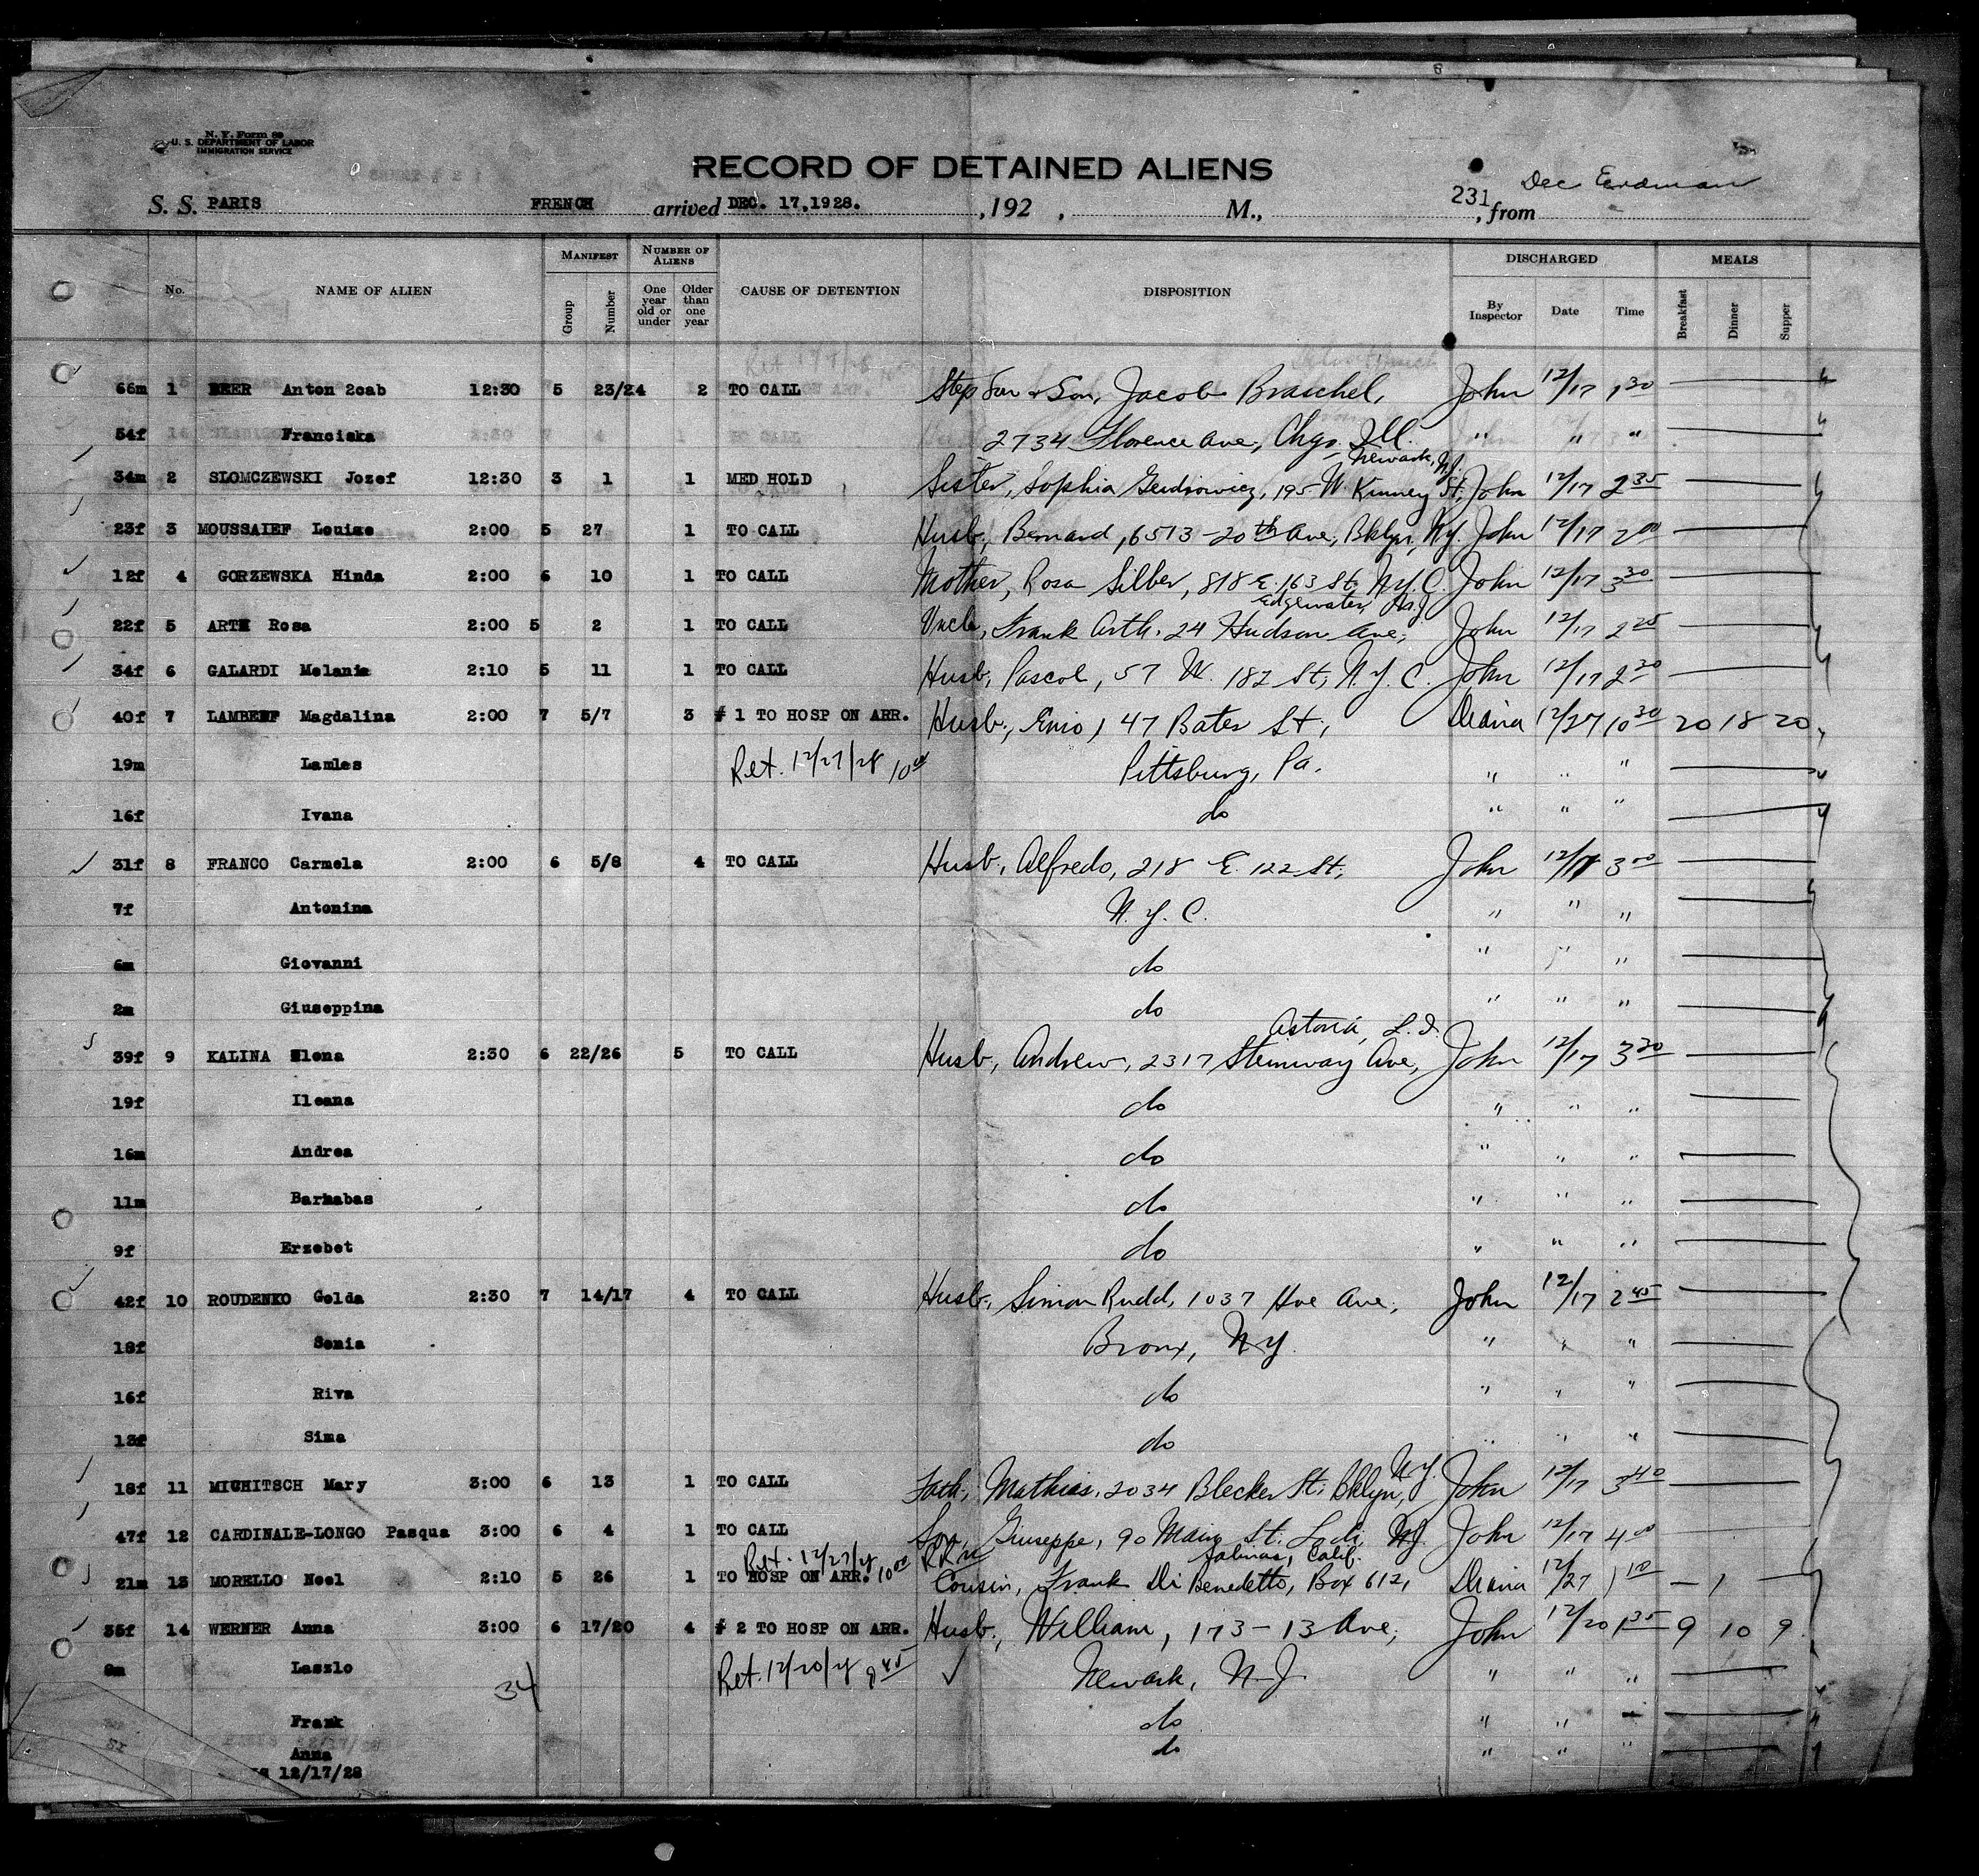 N. Y. Form 89
U. S. DEPARTMENT OF LABOR
IMMIGRATION SERVICE
RECORD OF DETAINED ALIENS
S. S. PARIS FRENCH arrived DEC. 17,1928. ,192 , M., 231 , from Dec Erdman
No. NAME OF ALIEN MANIFEST NUMBER OF ALIENS CAUSE OF DETENTION DISPOSITION DISCHARGED MEALS
Group Number One year old or under Older than one year By Inspector Date Time Breakfast Dinner Supper
66m 1 BEER Anton 2cab 12:30 5 23/24 2 TO CALL Step Son & Son, Jacob Braschel, John 12/17 1 30
54f Franciska 2734 Florence Ave, Chgo. Ill. " " "
Newark, N.J.
34m 2 SLOMCZEWSKI Jozef 12:30 3 1 1 MED HOLD Sister, Sophia 195 W. Kinney St, John 12/17 2 35
23f 3 MOUSSAIEF Louise 2:00 5 27 1 TO CALL Husb, Bernard, 6513-20th Ave, Bklyn, N.Y. John 12/17 2 00
12f 4 GORZEWSKA Hinda 2:00 6 10 1 TO CALL Mother, Rosa Silber, 818 E. 163 St, N.Y.C. John 12/17 3 30
Edgewater, N.J.
22f 5 ARTH Rosa 2:00 5 2 1 TO CALL Uncle, Frank Arth, 24 Hudson Ave, John 12/17 2 25
34f 6 GALARDI Melanie 2:10 5 11 1 TO CALL Husb, Pascol, 57 W. 182 St, N.Y.C. John 12/17 2 30
40f 7 Magdalina 2:00 7 5/7 3 # 1 TO HOSP ON ARR. Husb, Enio, 47 Bates St, 12/27 10 30 20 18 20
19m Lamles Ret. 12/27/28 10 00 Pittsburg, Pa. " " "
16f Ivana do " " "
31f 8 FRANCO Carmela 2:00 6 5/8 4 TO CALL Husb, Alfredo, 218 E. 122 St, John 12/17 3 00
7f Antonina N.Y.C. " " "
6m Giovanni do " " "
2m Giuseppina do " " "
Astoria, L.I.
39f 9 KALINA Elena 2:30 6 22/26 5 TO CALL Husb, Andrew, 2317 Steinway Ave, John 12/17 3 30
19f Ileana do " " "
16m Andrea do " " "
11m Barnabas do " " "
9f Erzebet do " " "
42f 10 ROUDENKO Golda 2:30 7 14/17 4 TO CALL Husb, Simon Rudd, 1037 Hoe Ave, John 12/17 2 45
18f Sonia Bronx, N.Y. " " "
16f Riva do " " "
13f Sima do " " "
18f 11 MICHITSCH Mary 3:00 6 13 1 TO CALL Fath, Mathias, 2034 Blecker St, Bklyn, N.Y. John 12/17 3 40
47f 12 CARDINALE-LONGO Pasqua 3:00 6 4 1 TO CALL Son Giuseppe, 90 Main St. Lodi, N.J. John 12/17 4 00
Ret. 12/27/28 10 00 Salinas, Calif.
21m 13 MORELLO Noel 2:10 5 26 1 TO HOSP ON ARR. Cousin, Frank Di Benedetto, Box 612, 12/27 1 10 1
35f 14 WERNER Anna 3:00 6 17/20 4 # 2 TO HOSP ON ARR. Husb, William, 173-13 Ave, John 12/20 1 35 9 10 9
Laszlo 34 Ret. 12/20/28 9 45 Newark, N.J. " " "
Frank do " " "
Anna do " " "
12/17/28